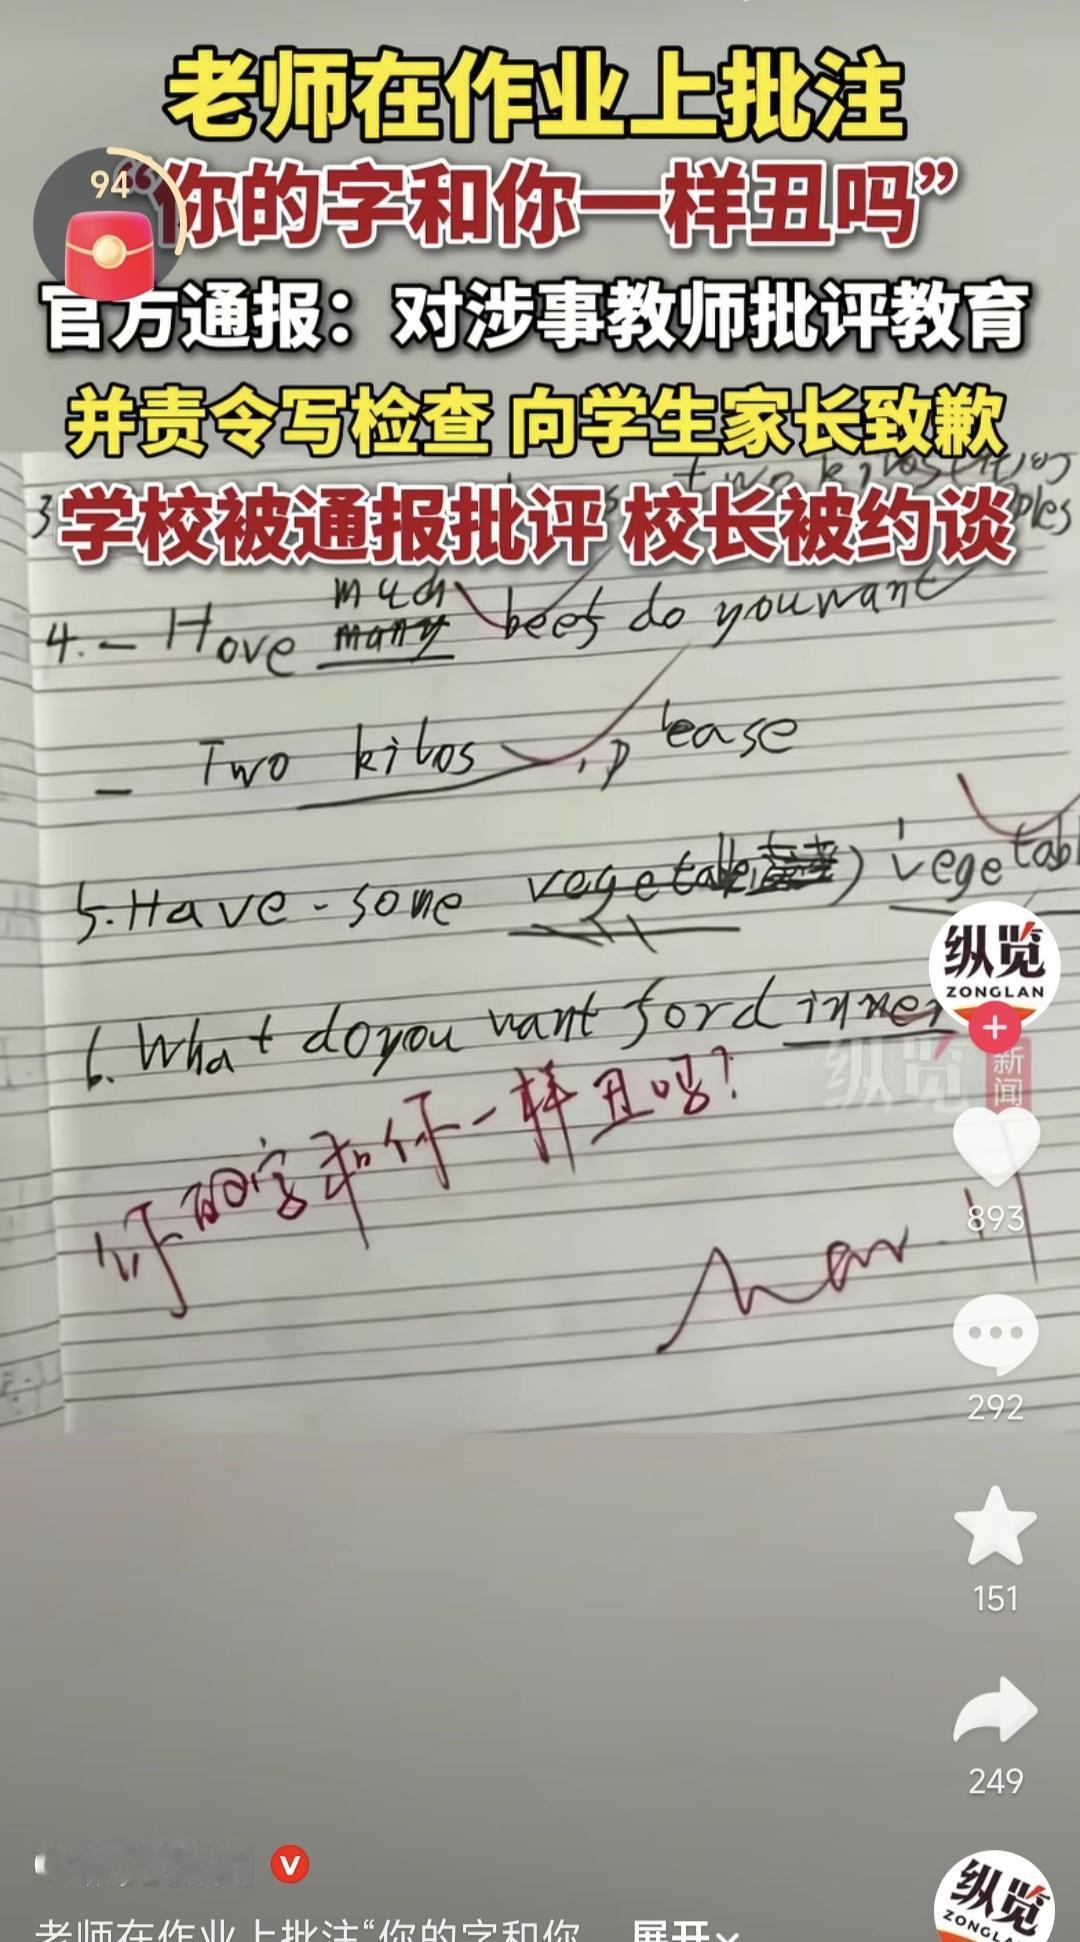 老师在作业上批注
94
“你的字和你一样丑吗”
官方通报：对涉事教师批评教育
并责令写检查 向学生家长致歉
two kilos
3
学校被通报批评 校长被约谈
ples
much
4. - Hove many beef do you want
- Two kilos , please
5. Have - some vegetable ) vegetabl
6. What do you want for dinner
你的字和你一样丑吗?
纵览
ZONGLAN
纵览
新闻
893
292
151
249
V
老师在作业上批注“你的字和你
展开
纵览
ZONGLAN